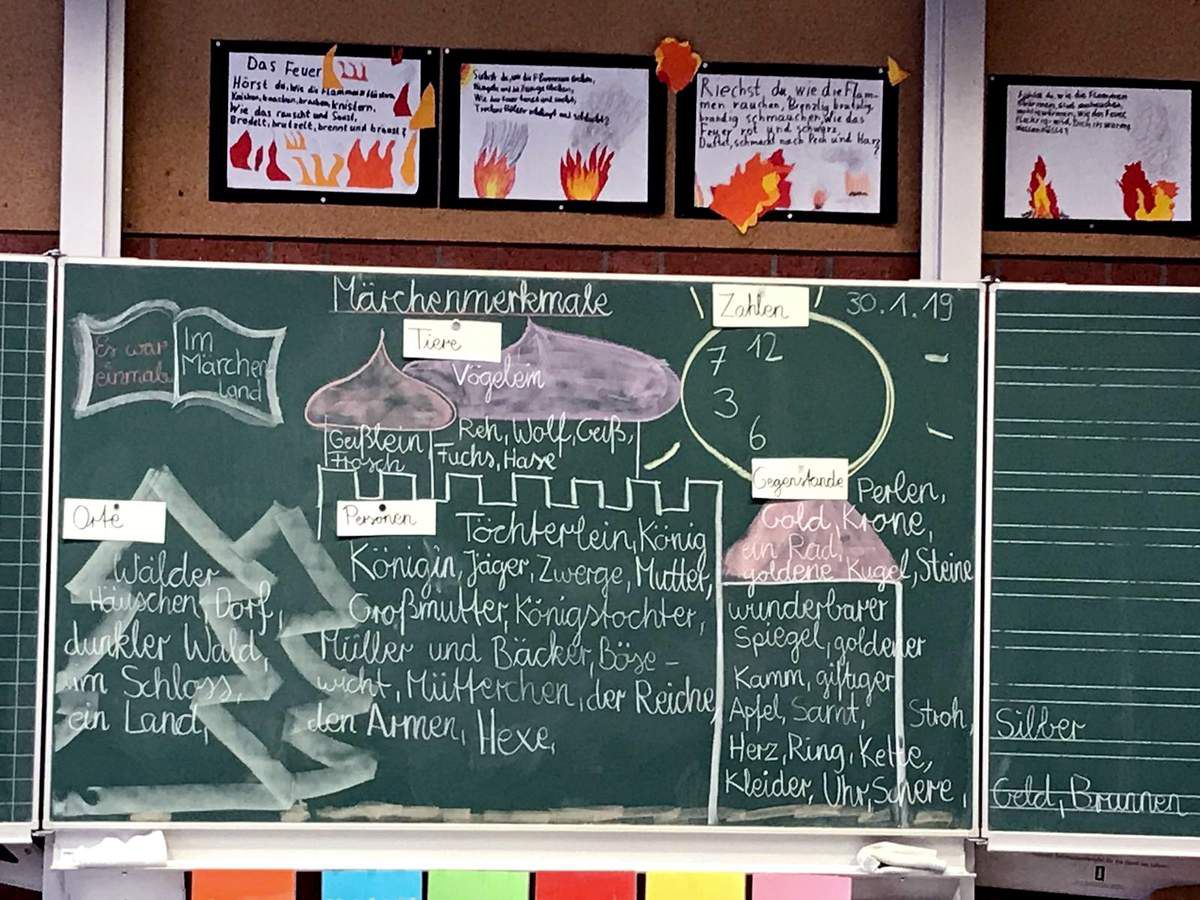 Das Feuer
Hörst du, wie die Flammen flüstern,
Knicken, knacken, krachen, knistern,
Wie das rauscht und saust,
Brodelt, brutzelt, brennt und braust?
Siehst du, wie die Flammen
Riechst du, wie die Flam-
men rauchen, Brenzlig, brutzlig,
brandig schmauchen, Wie das
Feuer rot und schwarz,
Duftet, schmeckt nach Pech und Harz?
Fühlst du, wie die Flammen
wie das Feuer
Märchenmerkmale
30.1.19
Es war
einmal
Im
Märchen-
land
Tiere
Vögelein
Geißlein,
Frosch
Reh, Wolf, Geiß,
Fuchs, Hase
Zahlen
12
7
3
6
Orte
Wälder
Häuschen, Dorf,
dunkler Wald,
im Schloss,
ein Land,
Personen
Töchterlein, König
Königin, Jäger, Zwerge, Mutter,
Großmutter, Königstochter,
Müller und Bäcker, Böse-
wicht, Mütterchen, der Reiche,
den Armen, Hexe,
Gegenstände
Perlen,
Gold, Krone,
ein Rad,
goldene Kugel, Steine
wunderbarer
Spiegel, goldener
Kamm, giftiger
Apfel, Samt, Stroh,
Herz, Ring, Kette,
Kleider, Uhr, Schere,
Silber
Geld, Brunnen